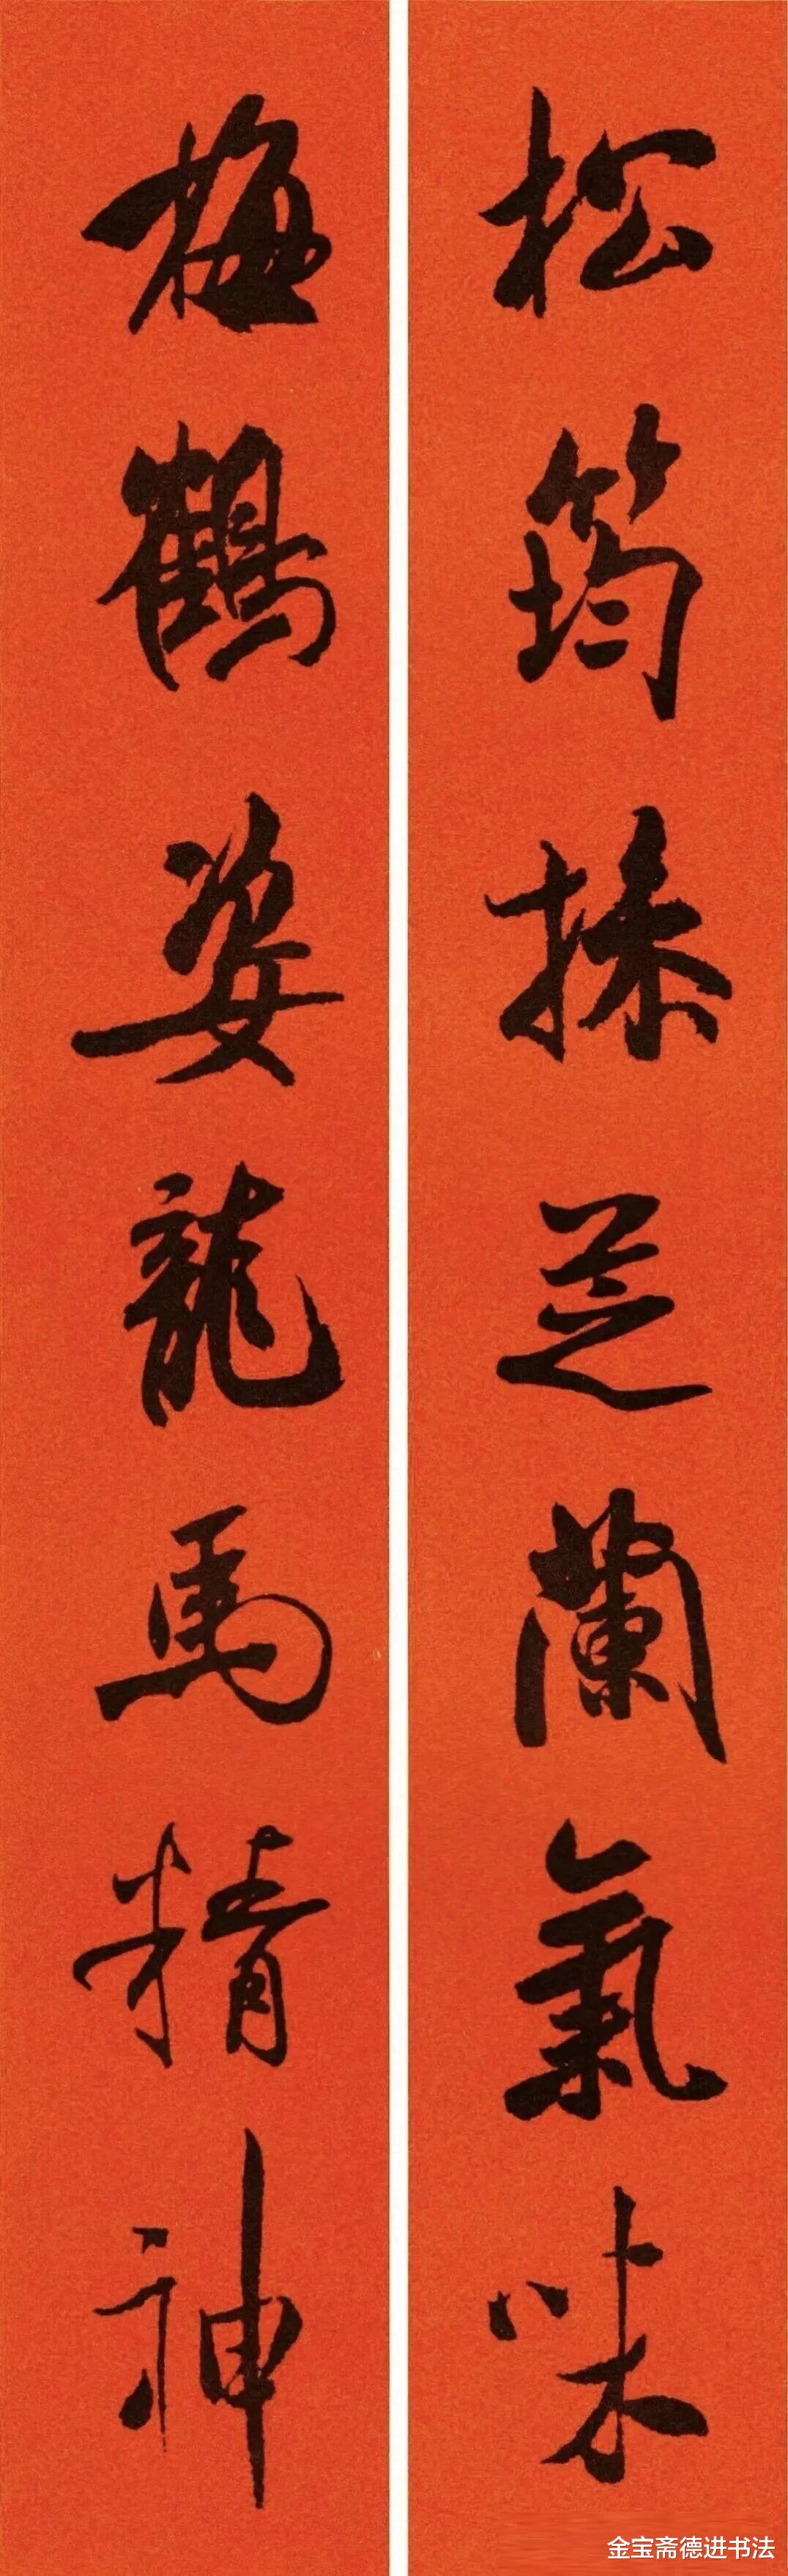 松筠操芝蘭氣味
梅鶴姿龍馬精神
金宝斋德进书法